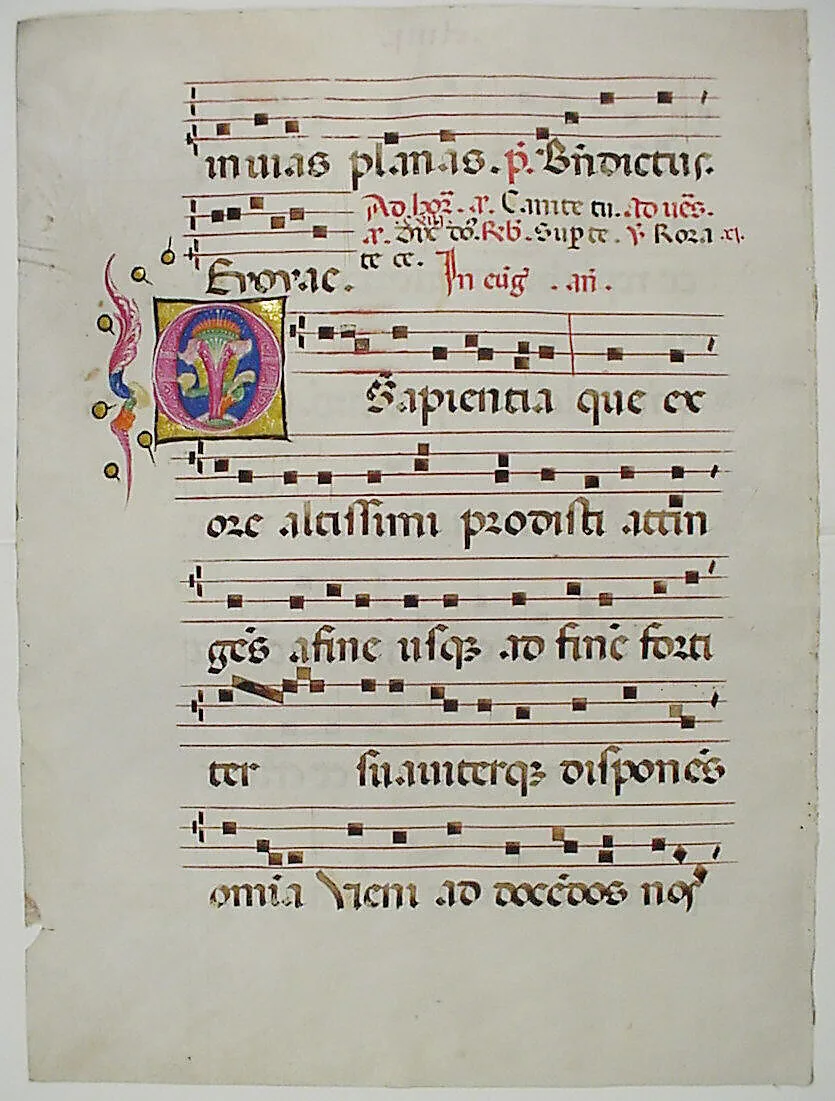 in uias planas. p̃. Bñdictus.
Ad hoꝝ. a. Canite tu. Ad ueš.
a. Dix̃ dõ. Rb̃. Suꝑ te. ℣ Rora
te ce. In eũg. añ.
Euouae.
O Sapientia que ex
ore altissimi prodisti attin
gẽs afine usqꝫ ad finẽ forti
ter suauiterqꝫ disponẽs
omĩa Veni ad docẽdos nos